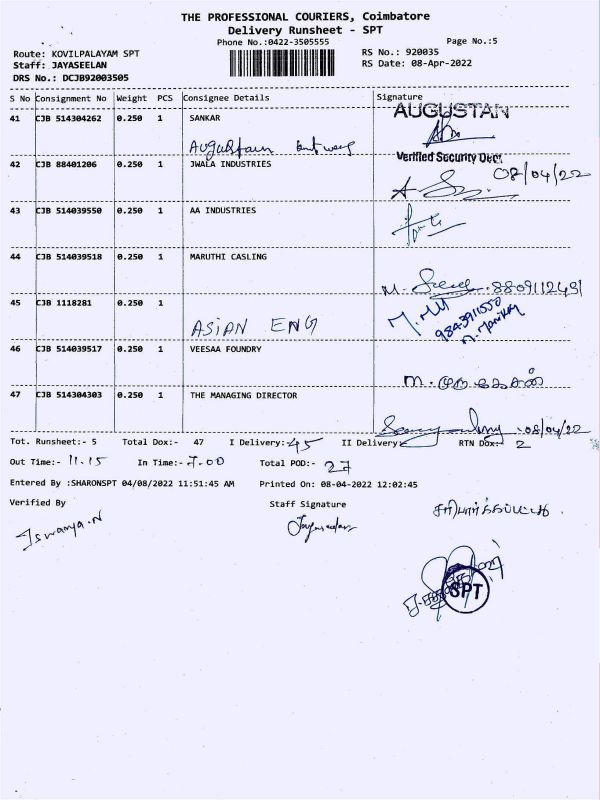 THE PROFESSIONAL COURIERS, Coimbatore
Delivery Runsheet - SPT
Phone No.:0422-3505555
Page No.:5
Route: KOVILPALAYAM SPT
RS No.: 920035
Staff: JAYASEELAN
RS Date: 08-Apr-2022
DRS No.: DCJB92003505
S No Consignment No Weight PCS Consignee Details Signature
AUGUSTAN
41 CJB 514304262 0.250 1 SANKAR
Verified Security Dept
42 CJB 88401206 0.250 1 JWALA INDUSTRIES
08/04/22
43 CJB 514039550 0.250 1 AA INDUSTRIES
44 CJB 514039518 0.250 1 MARUTHI CASLING
M.
45 CJB 1118281 0.250 1
ASIAN ENG
9843911550
46 CJB 514039517 0.250 1 VEESAA FOUNDRY
M. முருகேசன்
47 CJB 514304303 0.250 1 THE MANAGING DIRECTOR
08/04/22
Tot. Runsheet:- 5 Total Dox:- 47 I Delivery:- 45 II Delivery:- RTN Dox:- 2
Out Time:- 11.15 In Time:- 7.00 Total POD:- 27
Entered By :SHARONSPT 04/08/2022 11:51:45 AM Printed On: 08-04-2022 12:02:45
Verified By Staff Signature
சரிபார்க்கப்பட்டது.
Iswarya.N Jayaseelan
SPT